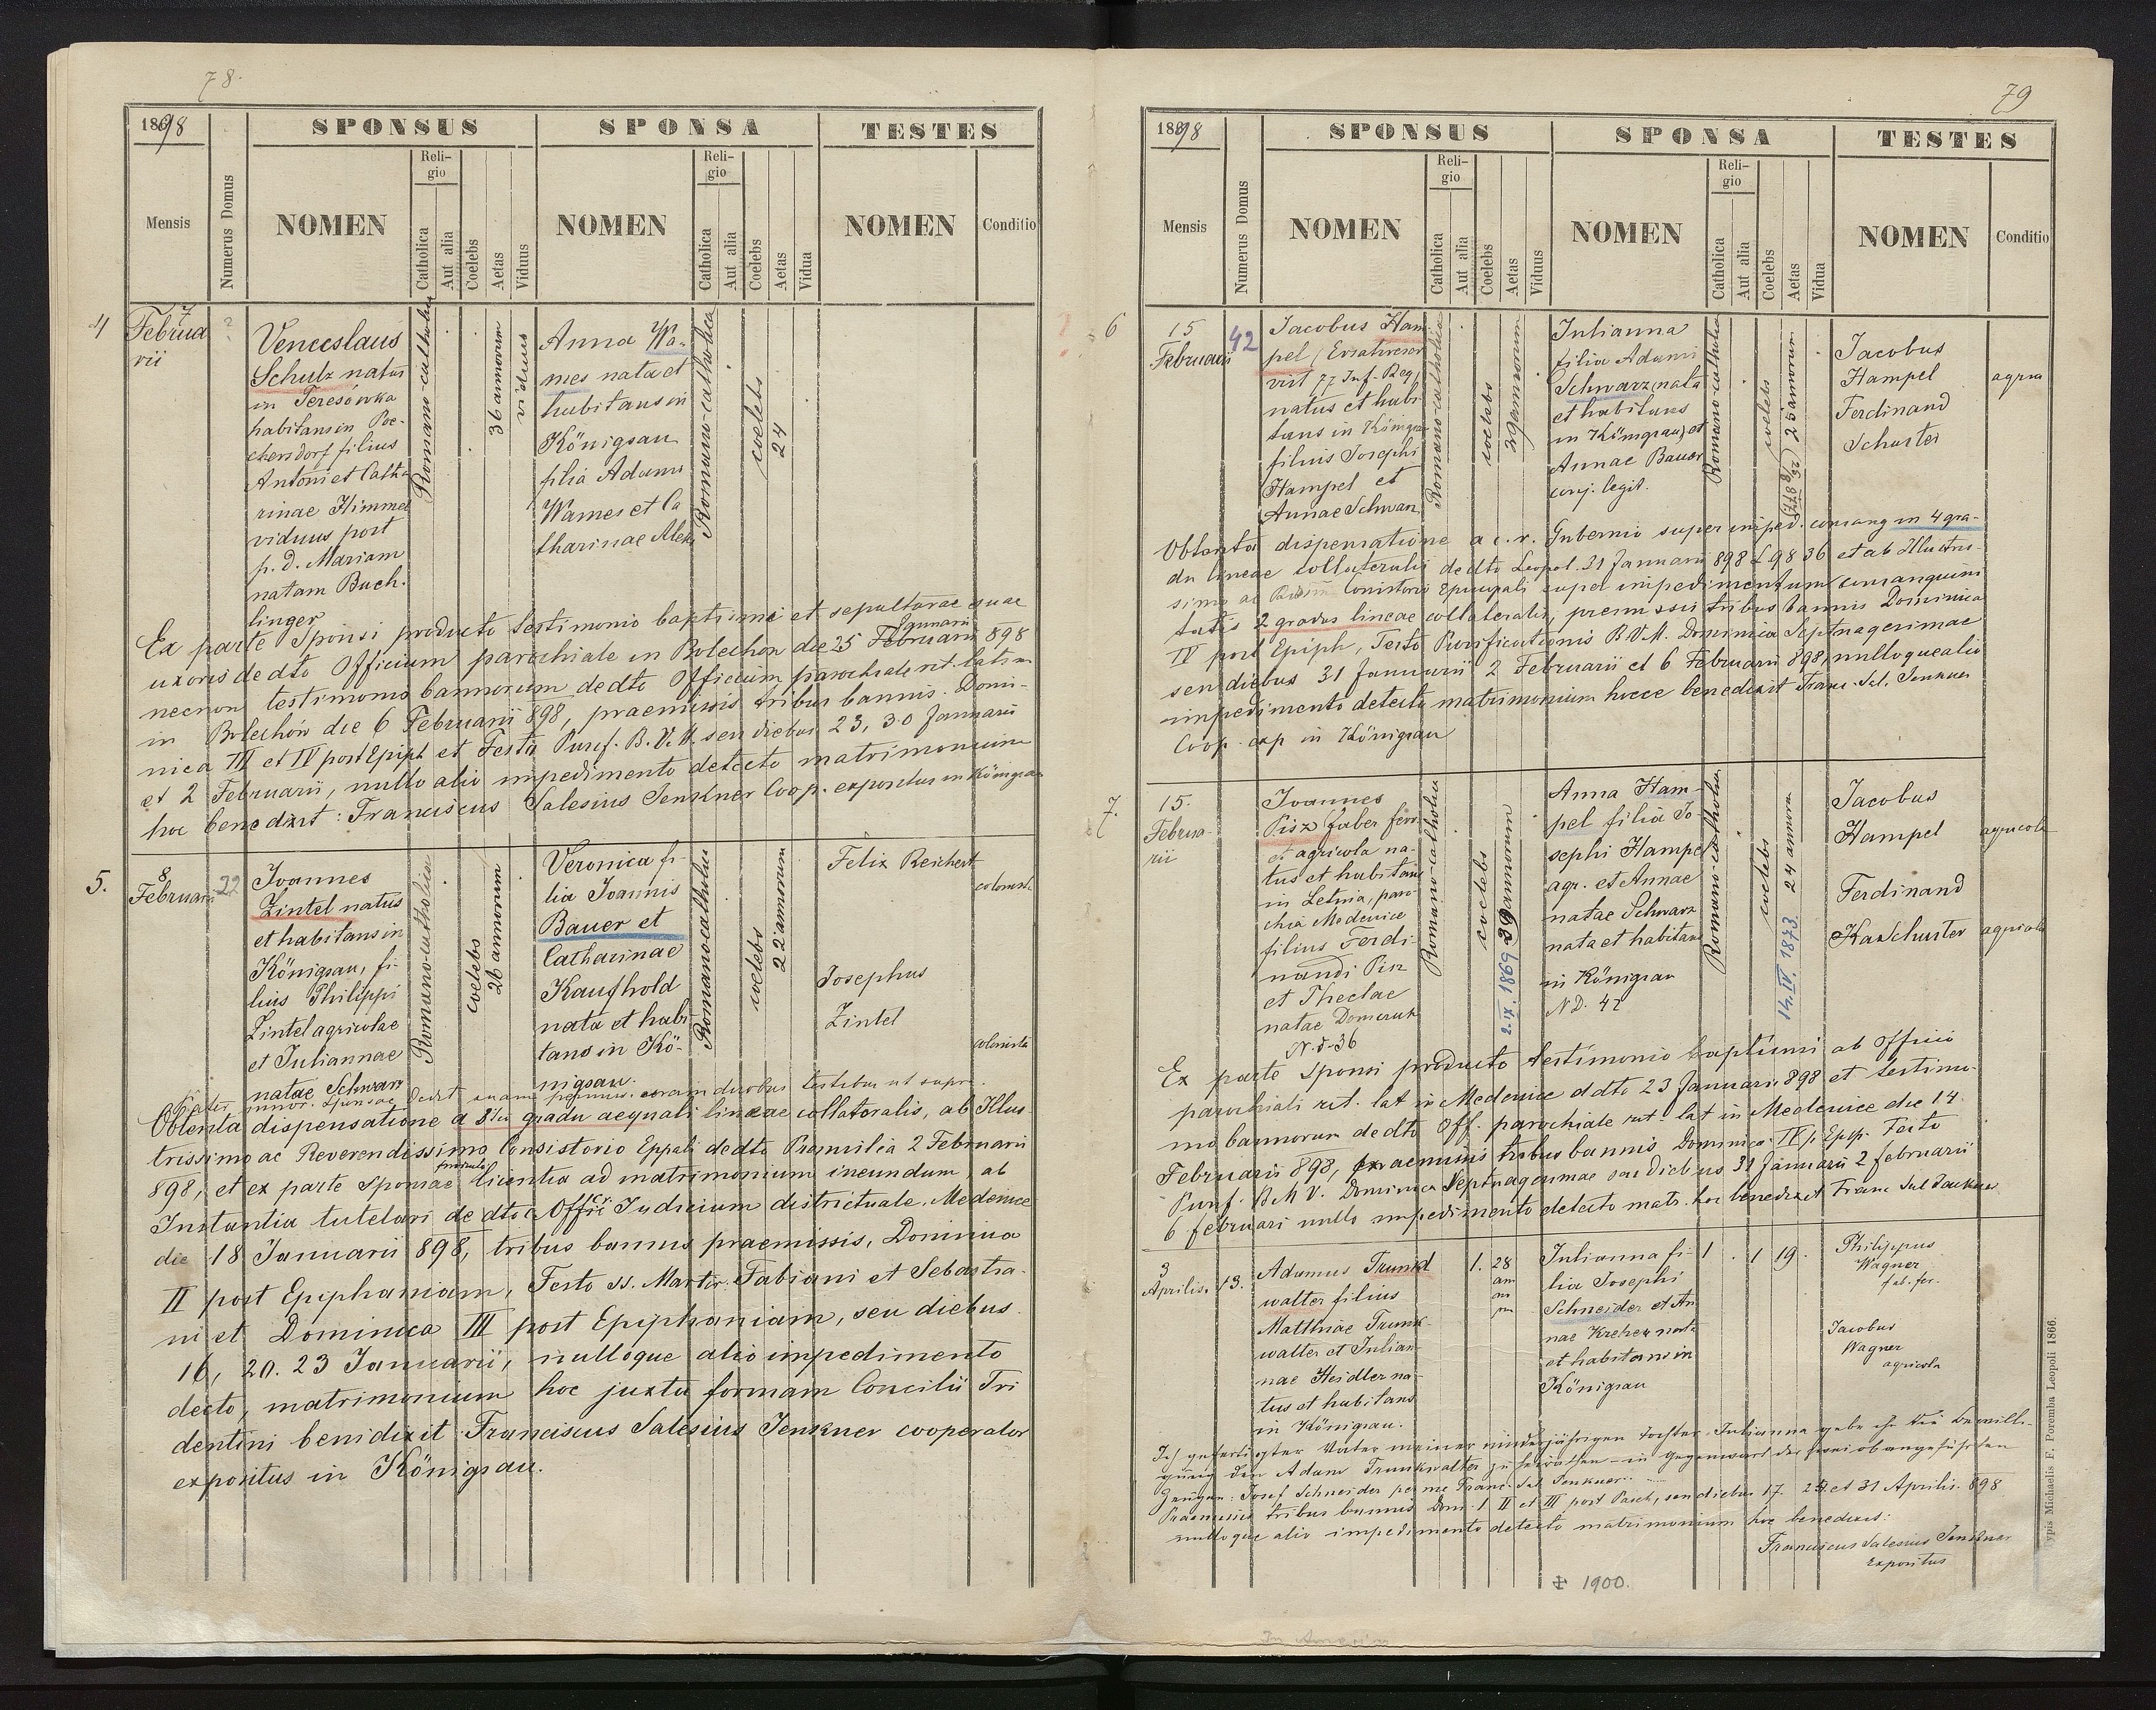 78.
1898
SPONSUS
SPONSA
TESTES
Mensis
Numerus Domus
NOMEN
Religio
Catholica
Aut alia
Coelebs
Aetas
Viduus
NOMEN
Religio
Catholica
Aut alia
Coelebs
Aetas
Vidua
NOMEN
Conditio
4
7
Februa
rii
?
Venceslaus
Schulz natus
in Teresówka
habitans in Poe-
chersdorf filius
Antoni et Catha
rinae Himmel
viduus post
p. d. Mariam
natam Buch-
linger
Romano-catholica
36 annorum
viduus
Anna Wa-
mes nata et
habitans in
Königsau
filia Adami
Wames et Ca
tharinae Aleks
Romano-catholica
coelebs
24
Ex parte Sponsi producto testimonio baptismi et sepulturae suae
uxoris de dto Officium parochiale in Bolechon die 25 Februarii Januarii 898
necnon testimonio bannorum de dto Officium parochiale rit. latin
in Bolechów die 6 Februarii 898, praemissis tribus bannis. Domi-
nica III et IV post Epiph et Festo Purif. B. V. M. seu diebus 23, 30 Januarii
et 2 Februarii, nullo alio impedimento detecto matrimonium
hoc benedixit: Franciscus Salesius Jenkner Coop. expositus in Königsau
5.
8
Februarii
22
Joannes
Zintel natus
et habitans in
Königsau, fi-
lius Philippi
Zintel agricolae
et Juliannae
natae Schwarz
Romano-catholica
coelebs
26 annorum
Veronica fi-
lia Joannis
Bauer et
Catharinae
Kaufhold
nata et habi-
tans in Kö-
nigsau.
Romano-catholica
coelebs
22 annorum
Felix Reichert
colonista
Josephus
Zintel
colonista
Pater minor. sponsae dedit suam permiss. coram duobus testibus ut supra.
Obtenta dispensatione a 3tio gradu aequali lineae collateralis, ab Illus
trissimo ac Reverendissimo Consistorio Eppali de dto Premislia 2 Februarii
898, et ex parte sponsae producta licentia ad matrimonium ineundum, ab
Instantia tutelari de dto c. r. Offic Judicium districtuale. Medenice
die 18 Januarii 898, tribus bannis praemissis, Dominica
II post Epiphaniam, Festo ss. Martir. Fabiani et Sebastia-
ni et Dominica III post Epiphaniam, seu diebus
16, 20. 23 Januarii, nulloque alio impedimento
decto, matrimonium hoc juxta formam Concilii Tri
dentini benidixit Franciscus Salesius Jenkner cooperator
expositus in Königsau.
79
1898
SPONSUS
SPONSA
TESTES
Mensis
Numerus Domus
NOMEN
Religio
Catholica
Aut alia
Coelebs
Aetas
Viduus
NOMEN
Religio
Catholica
Aut alia
Coelebs
Aetas
Vidua
NOMEN
Conditio
6
15
Februarii
42
Jacobus Ham-
pel (Ersatzreser
vist 77 Inf-Reg)
natus et habi
tans in Königsau
filius Josephi
Hampel et
Annae Schwarz
Romano-catholica
coelebs
29 annorum
Julianna
filia Adami
Schwarz (nata
et habitans
in Königsau) et
Annae Bauer
conj. legit.
Romano-catholica
coelebs
25 annorum
Jacobus
Hampel
Ferdinand
Schuster
Obtenta dispensatione a c. r. Gubernio super imped. consang in 4 gra-
du lineae collateralis de dto Leopol. 31 Januarii 898 L 9836 et ab Illustris-
simo ac Consistorio Episcopali super impedimentum consanguini
tatis 2 gradus lineae collateralis, praemissis tribus bannis Dominica
IV post Epiph, Festo Purificationis B V M. Dominica Septuagesimae
seu diebus 31 Januarii 2 Februarii et 6 Februarii 898, nulloque alio
impedimento detecto matrimonium hocce benedixit Franc. Sal. Jenkner
Coop. exp in Königsau
7.
15.
Februa-
rii
Joannes
Pisz faber ferr.
et agricola na-
tus et habitans
in Letnia, paro-
chia Medenice
filius Ferdi-
nandi Pisz
et Theclae
natae Domeruk
N.d. 36
Romano-catholica
coelebs
29 annorum
2.IX.1869
Anna Ham-
pel filia Jo-
sephi Hampel
agr. et Annae
natae Schwarz
nata et habitans
in Königsau
ND. 42
Romano-catholica
coelebs
24 annorum
14.IV.1873.
Jacobus
Hampel
agricola
Ferdinand
Schuster
agricola
Ex parte sponsi producto testimonio baptismi ab Officio
parochiali rit. lat in Medenice ddto 23 Januarii 898 et testimo-
nio bannorum de dto Off. parochiale rit. lat in Medenice die 14
Februarii 898, praemissis tribus bannis Dominica IV p. Epip. Festo
Purif. B M V. Dominica Septuagesimae seu diebus 31 Januarii 2 februarii
6 februari nullo impedimento detecto matr. hoc benedixit Franc Sal Jenkner
3
Aprilis.
13.
Adamus Trunk
walter filius
Matthiae Trunk-
walter et Julian-
nae Heidler na-
tus et habitans
in Königsau.
1.
28
an
no
rum
Julianna fi-
lia Josephi
Schneider et An
nae Kreher nata
et habitans in
Königsau
1
1
19.
Philippus
Wagner
fab. fer.
Jacobus
Wagner
agricola
Ich gefertigter Vater meiner minderjährigen Tochter Julianna gebe ihr die Bewilli-
gung den Adam Trunkwalter zu heirathen - in Gegenwart der zwei obangeführten
Zeugen: Josef Schneider per me Franc. Sal Jenkner.
Praemissis tribus bannis Dom. I II et III post Pasch, seu diebus 17. 24 et 31 Aprilis. 898
nulloque alio impedimento detecto matrimonium hoc benedixi:
Franciscus Salesius Jenkner
Expositus
✠ 1900.
ypis Michaelis F. Poremba Leopoli 1866.